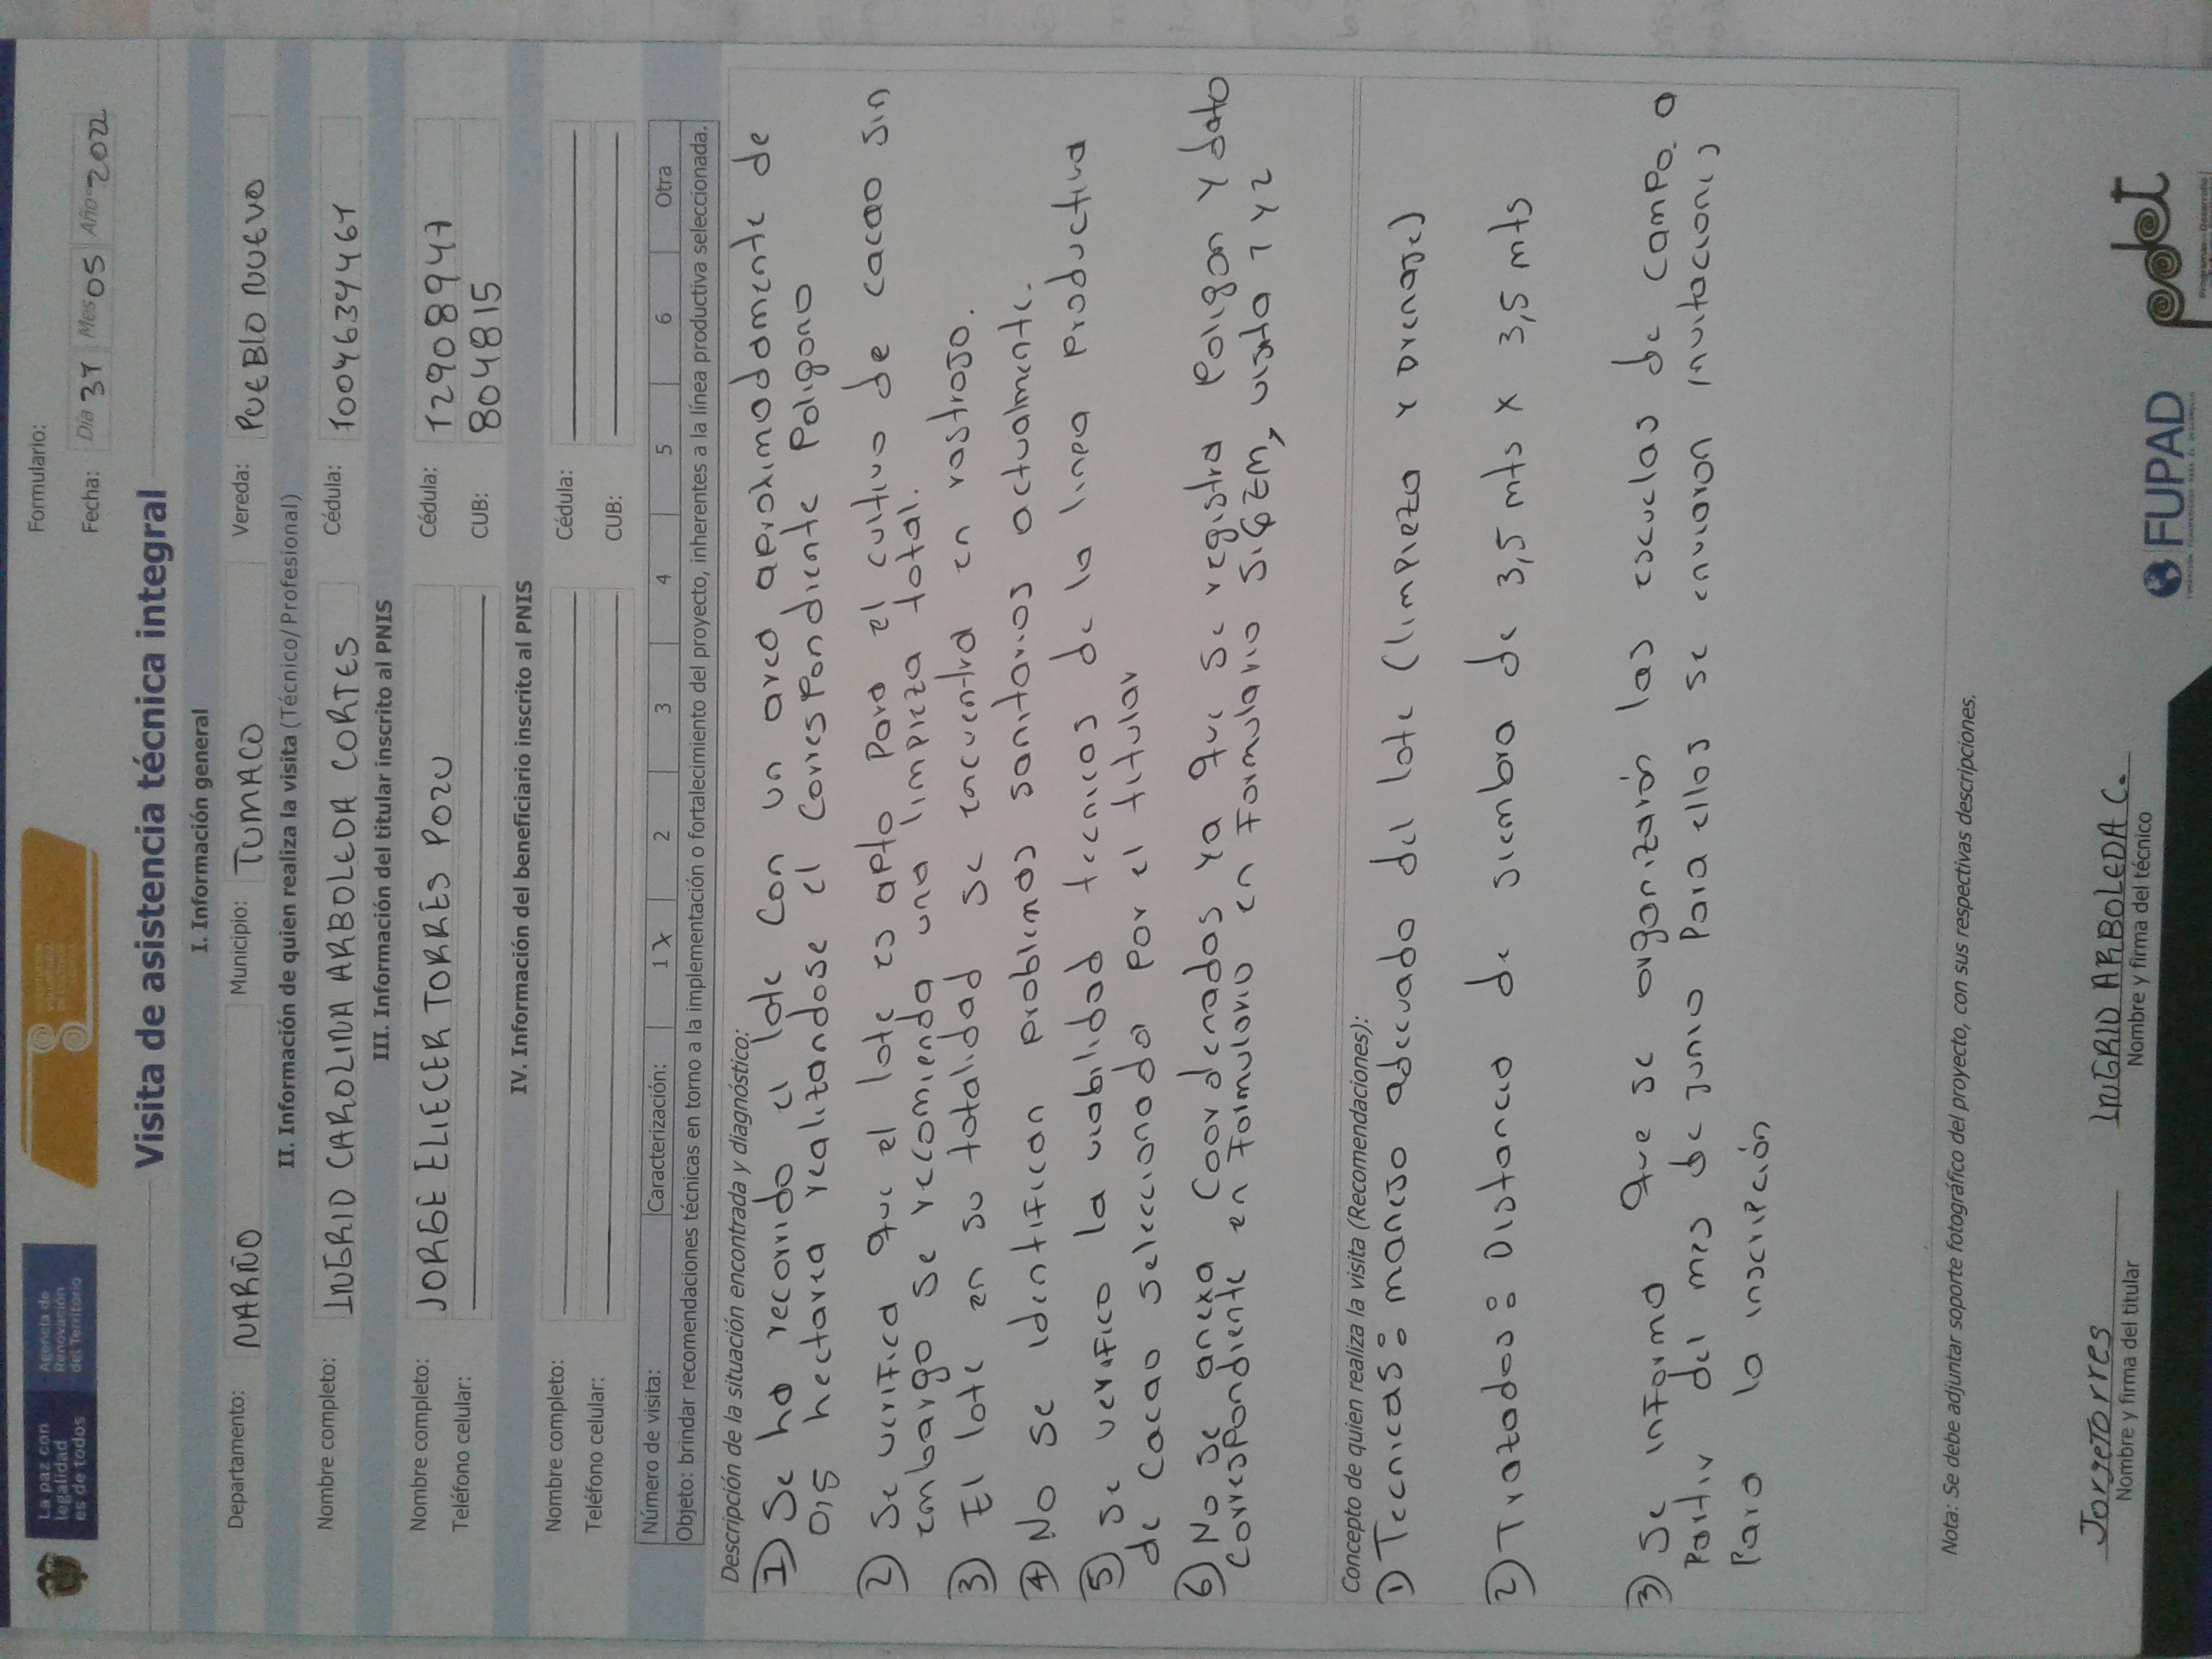 La paz con
legalidad
es de todos
Agencia de
Renovación
del Territorio
Formulario:
Fecha: Día 31 Mes 05 Año 2022
Visita de asistencia técnica integral
I. Información general
Departamento: NARÑO Municipio: TUMACO Vereda: PUEBLO NUEVO
II. Información de quien realiza la visita (Técnico/Profesional)
Nombre completo: INGRID CAROLINA ARBOLEDA CORTES Cédula: 1004634461
III. Información del titular inscrito al PNIS
Nombre completo: JORGE ELIECER TORRES POZO Cédula: 12908947
Teléfono celular: CUB: 804815
IV. Información del beneficiario inscrito al PNIS
Nombre completo: Cédula:
Teléfono celular: CUB:
Número de visita: Caracterización: 1 X 2 3 4 5 6 Otra
Objeto: brindar recomendaciones técnicas en torno a la implementación o fortalecimiento del proyecto, inherentes a la línea productiva seleccionada.
Descripción de la situación encontrada y diagnóstico:
1) Se ha recorrido el lote con un area aproximadamente de
0,5 hectarea realizandose el correspondiente Poligono
2) Se verifica que el lote es apto para el cultivo de cacao sin
embargo se recomienda una limpieza total.
3) El lote en su totalidad se encuentra en rastrojo.
4) No se identifican problemas sanitarios actualmente.
5) Se verifico la viabilidad tecnicas de la linea productiva
de cacao seleccionada por el titular
6) No se anexa coordenadas ya que se registra poligon y dato
correspondiente en formulario en formulario SIGEM, visita 1 y 2
Concepto de quien realiza la visita (Recomendaciones):
1) Tecnicas: manejo adecuado del lote (limpieza y Drenajes)
2) Trazados: Distancia de siembra de 3,5 mts x 3,5 mts
3) Se informa que se organizarón las escuelas de campo a
partir del mes de junio para ellos se enviaron invitaciones
para la inscripción
Nota: Se debe adjuntar soporte fotográfico del proyecto, con sus respectivas descripciones.
Jorge Torres
Nombre y firma del titular
INGRID ARBOLEDA C.
Nombre y firma del técnico
FUPAD
pdet